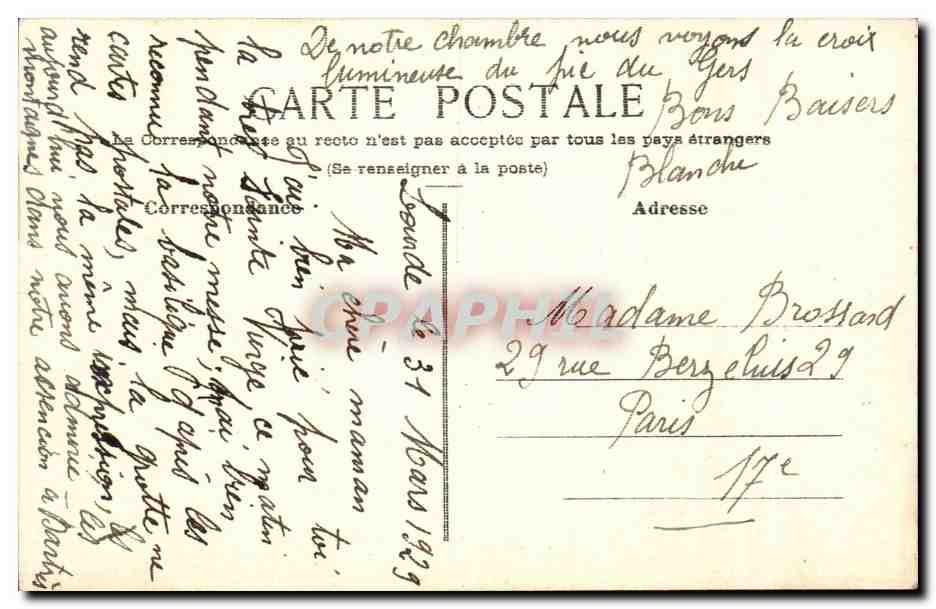 De notre chambre nous voyons la croix
lumineuse du pic du Gers
Bons Baisers
Blanche
CARTE POSTALE
La Correspondance au recto n'est pas acceptée par tous les pays étrangers
(Se renseigner à la poste)
Correspondance
Adresse
le 31 Mars 1929
Ma chère maman
J'ai bien prié pour toi
la très Sainte Vierge ce matin
pendant notre messe, j'ai bien
reconnu la basilique d'après les
cartes postales, mais la grotte ne
rend pas la même expression,
aujourd'hui nous avons admiré les
montagnes dans notre ascencion à Bartrès
Madame Brossard
29 rue Berzelius 29
Paris
17e
CPAPHIL